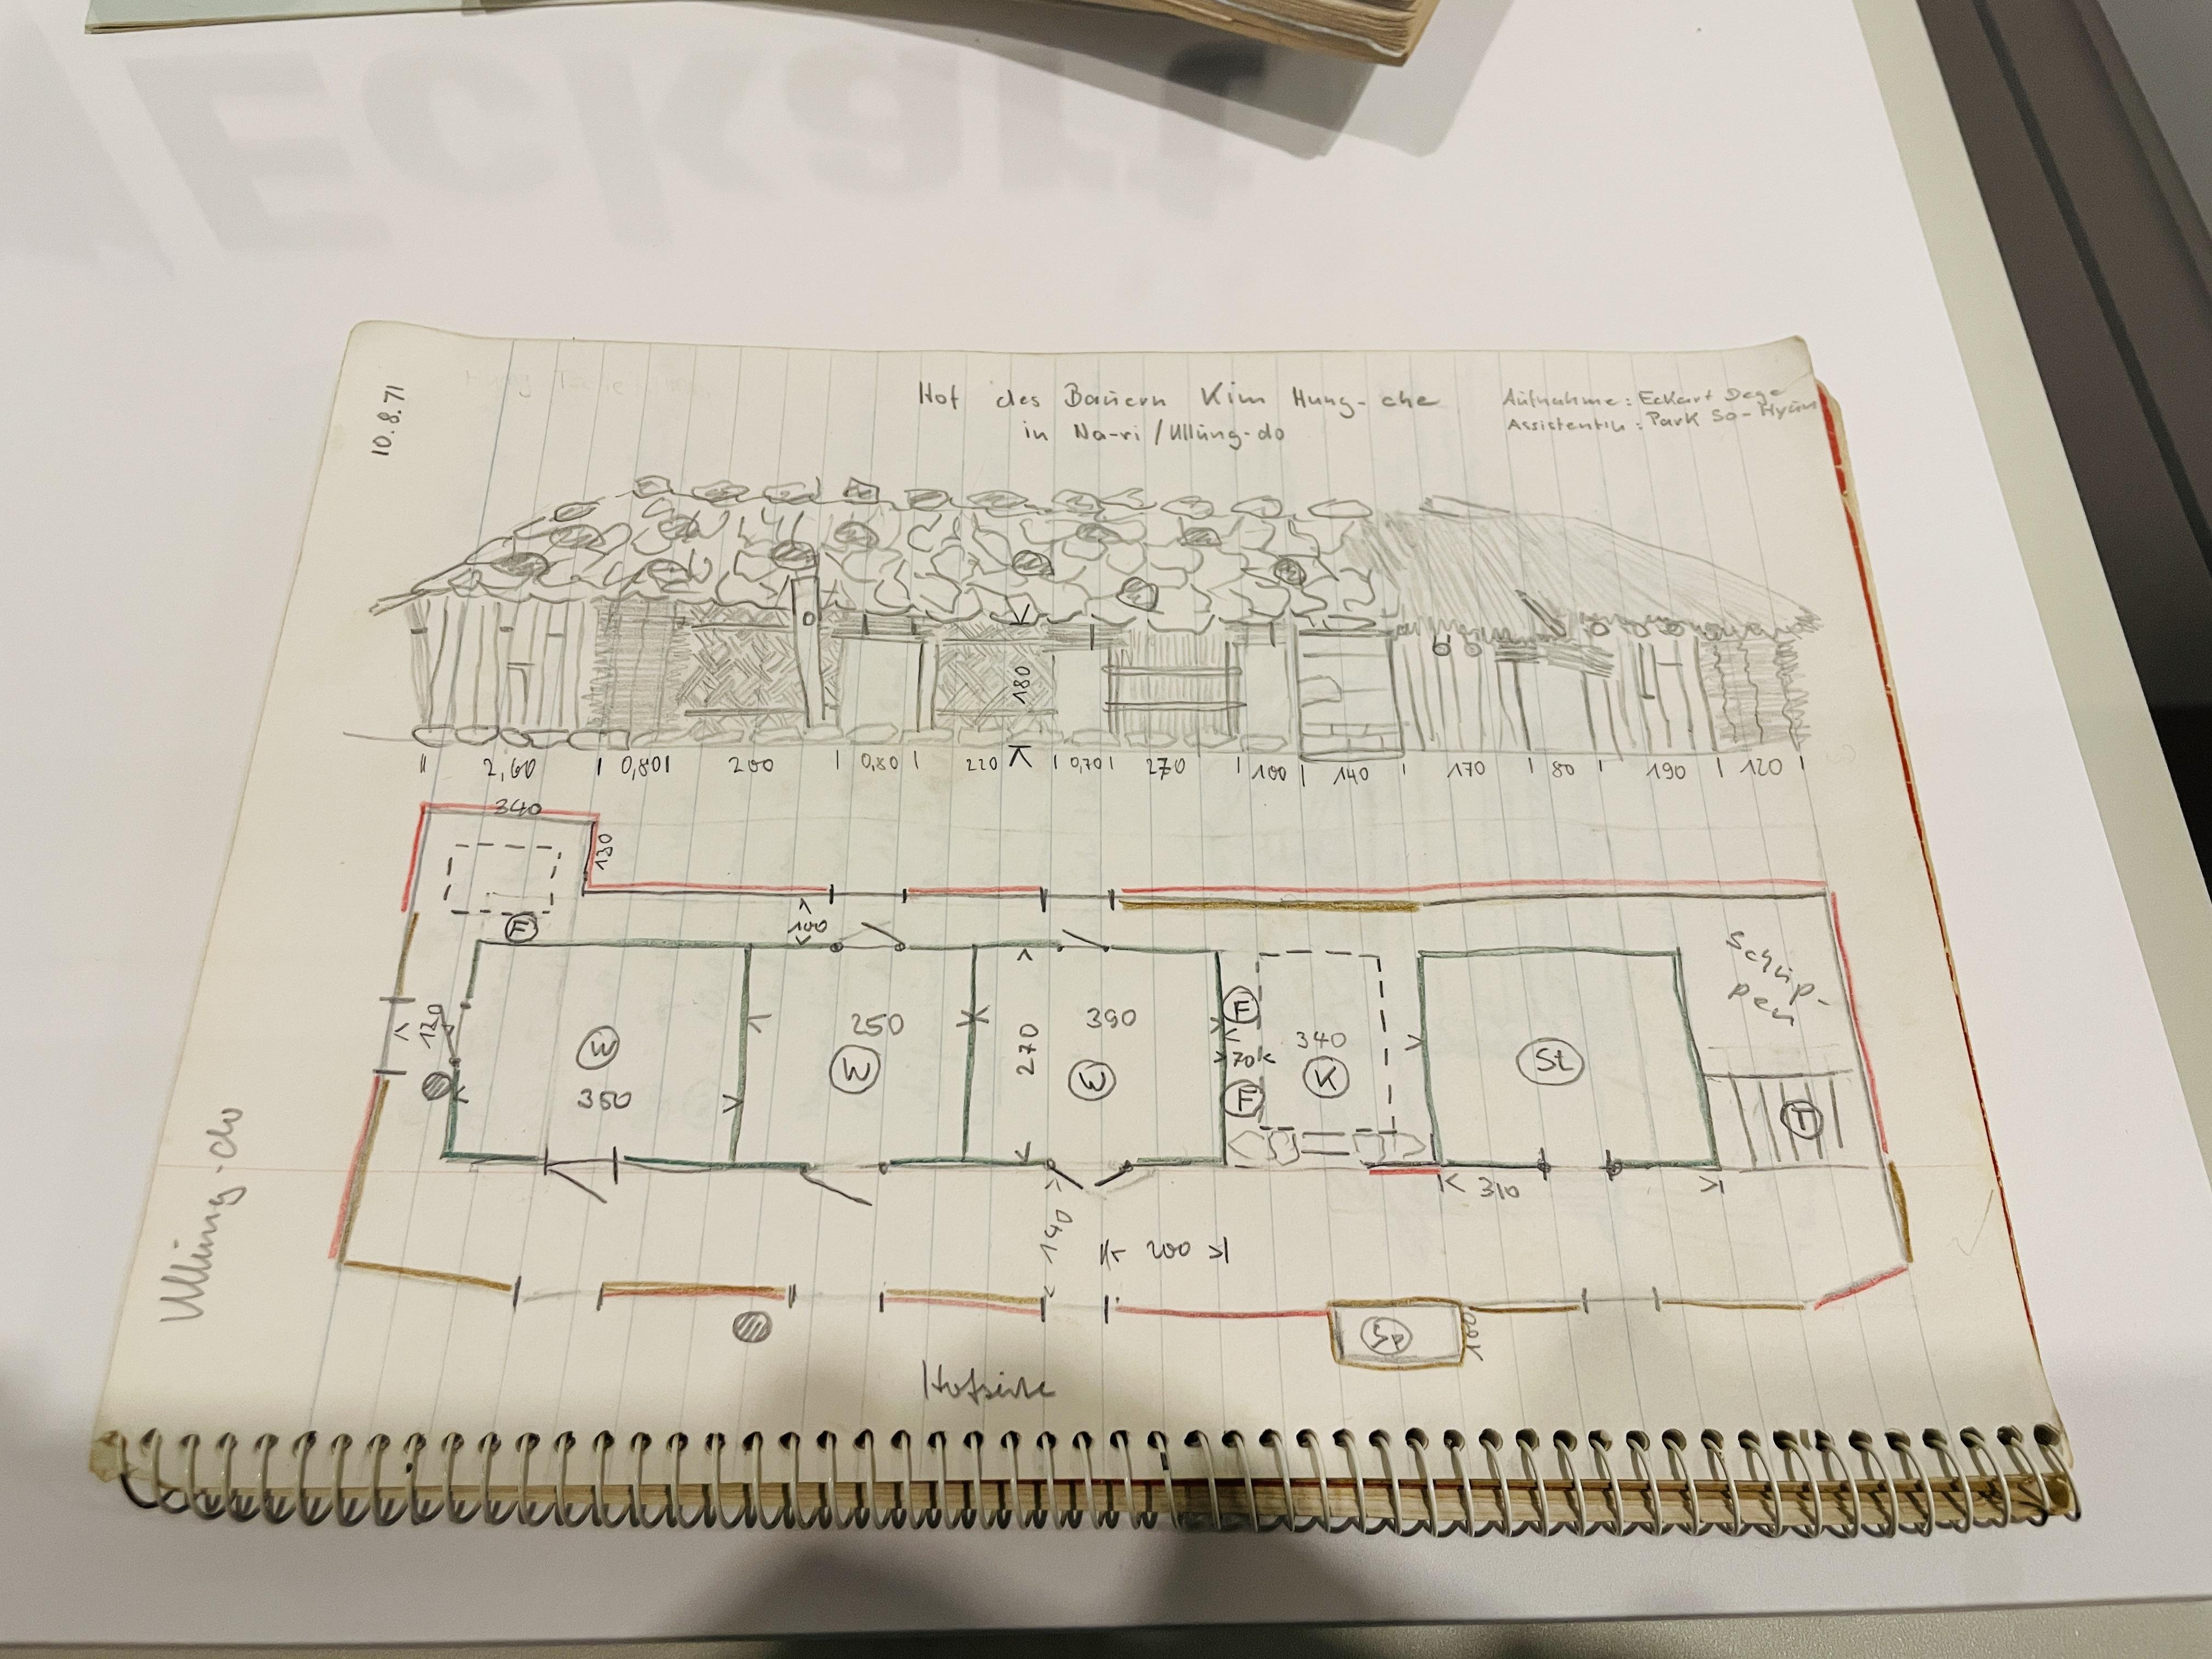 Eckart
10.8.71
Hof des Bauern Kim Hung-che
in Na-ri / Ullŭng-do
Aufnahme: Eckart Dege
Assistentin: Park So-Hyŭn
180
2,60 0,80 200 0,80 220 0,70 270 100 140 170 80 190 120
340
130
F
100
120
W
350
250
W
270
390
W
F
70
F
340
K
St
310
Schup-
pen
T
140
200
Sp
100
Ullŭng-do
Hofseite